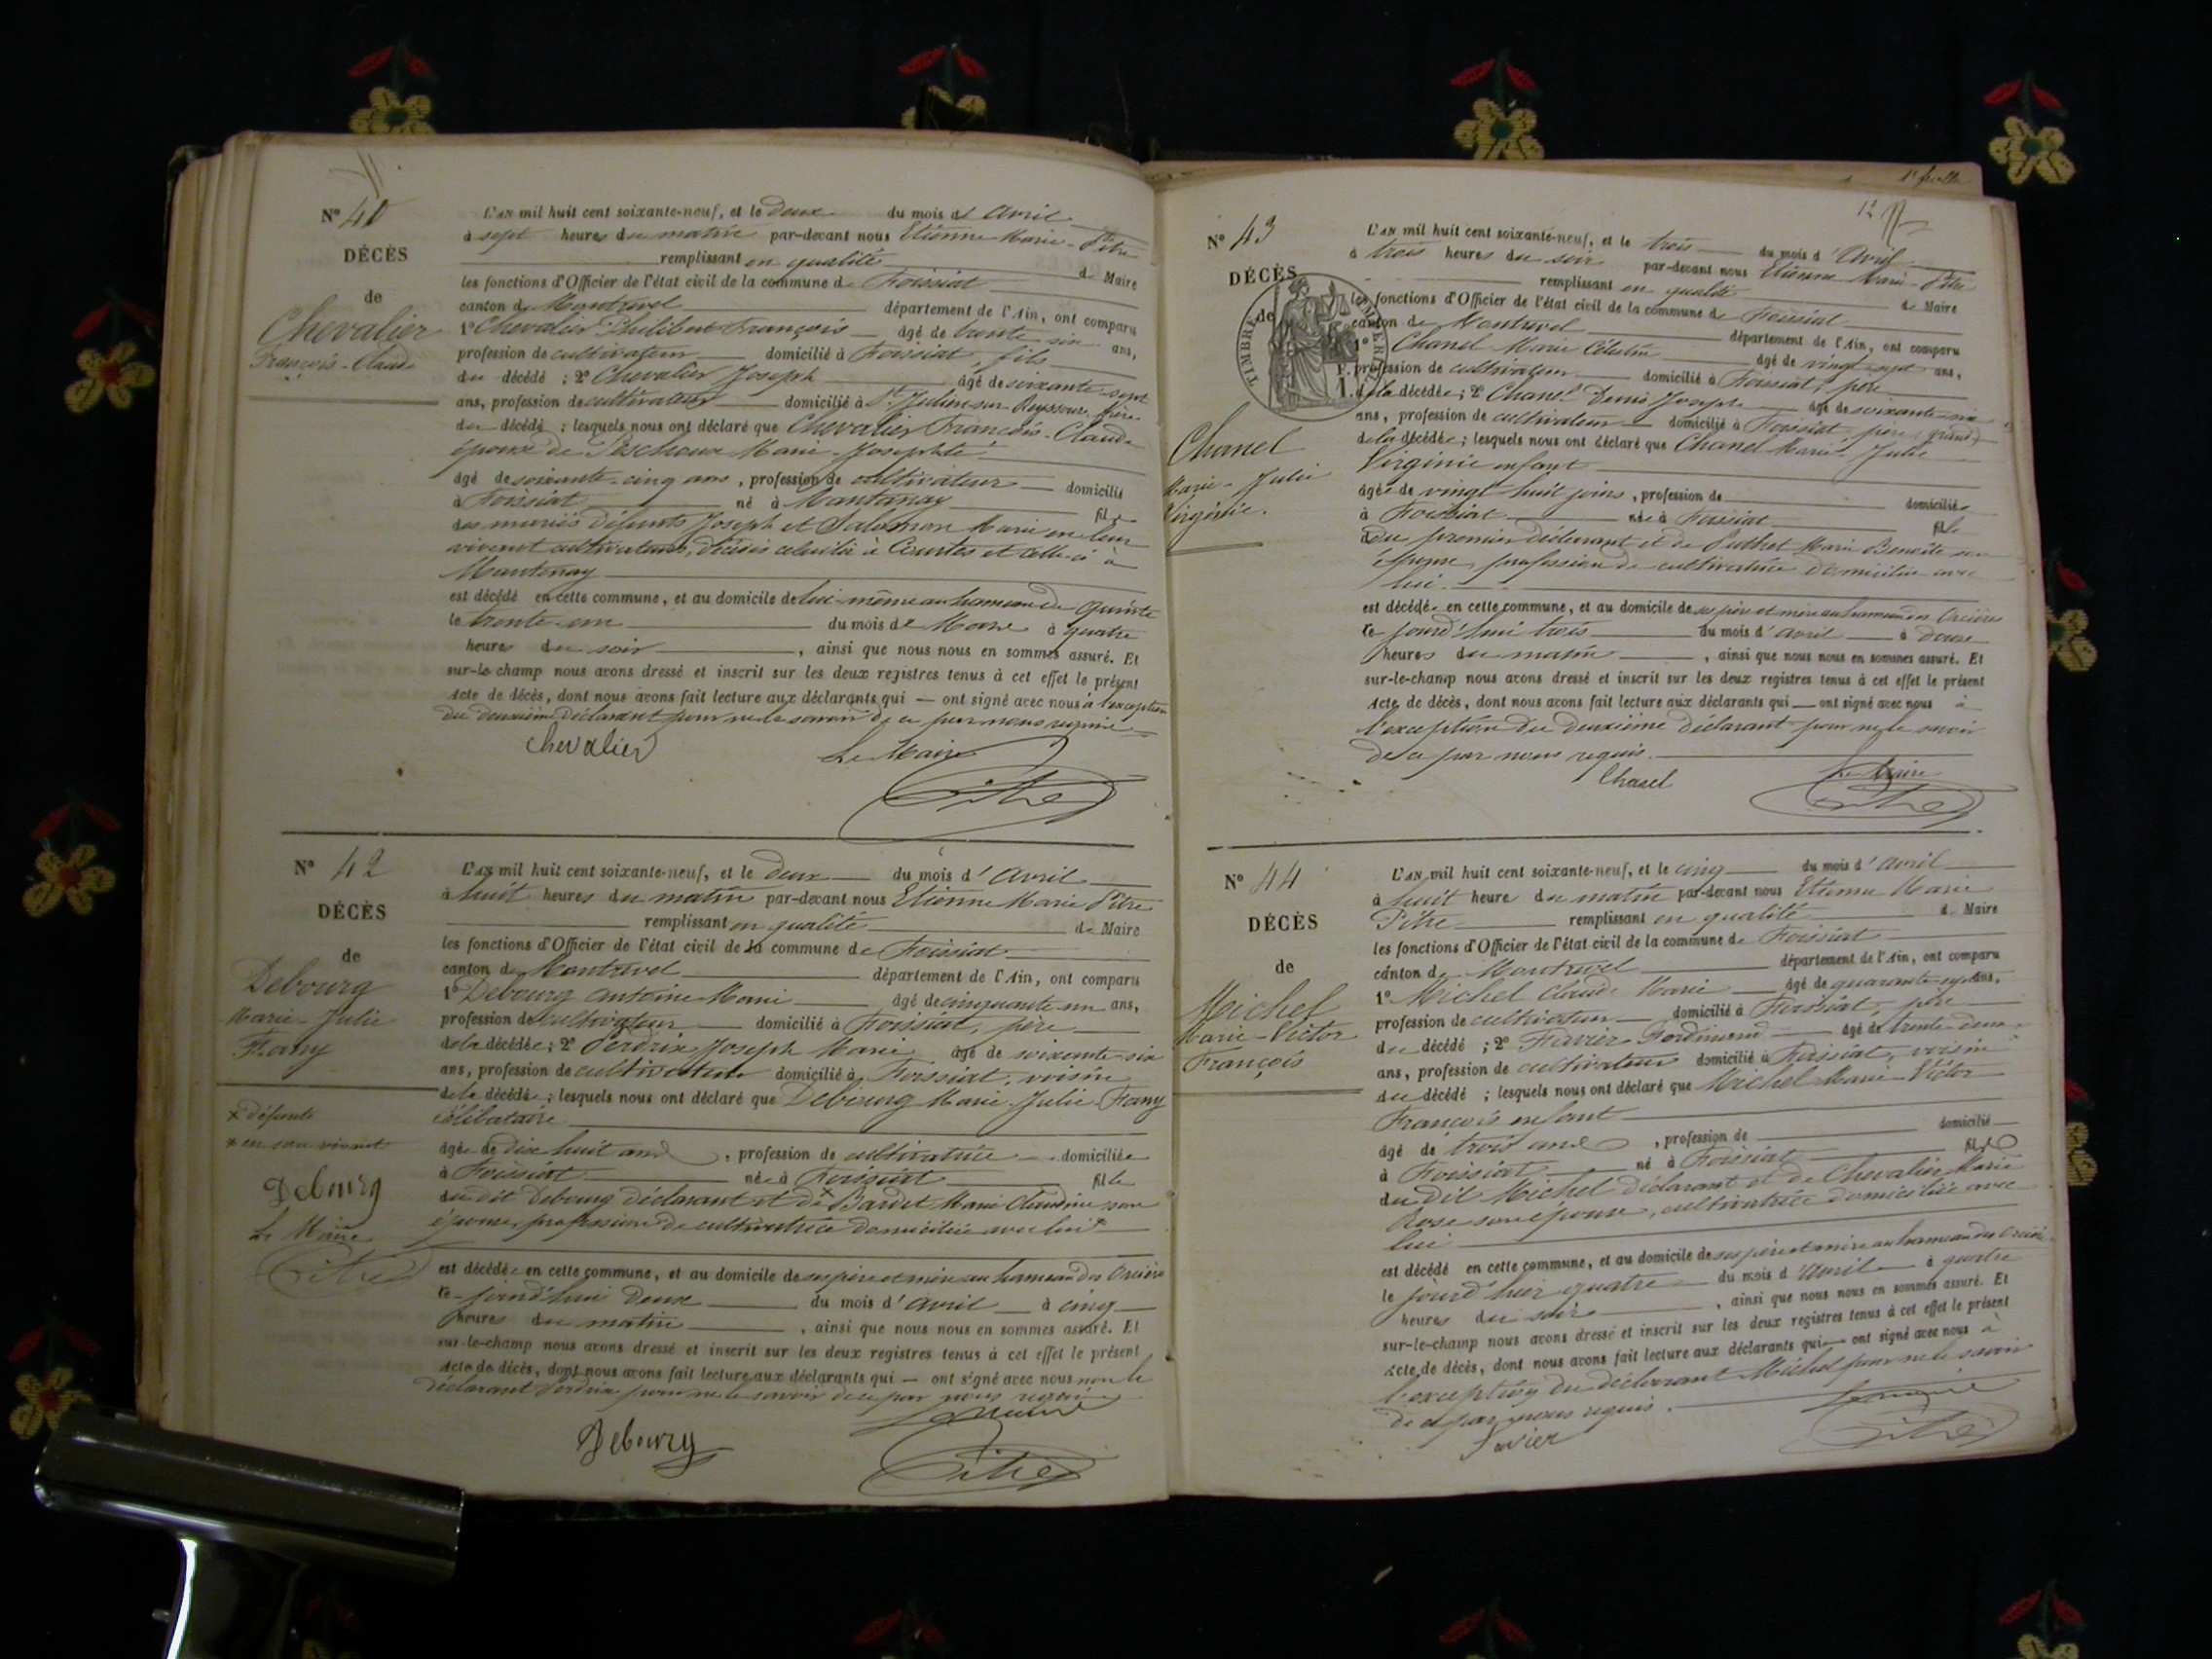 N° 41
DÉCÈS
de
Chevalier
François-Claude
L'AN mil huit cent soixante-neuf, et le deux du mois d' avril
à sept heures du matin par-devant nous Etienne Marie Pitre
remplissant en qualité de Maire
les fonctions d'Officier de l'état civil de la commune de Foissiat
canton de Montrevel département de l'Ain, ont comparu
1° Chevalier Philibert François âgé de trente-six ans,
profession de cultivateur domicilié à Foissiat, fils
du décédé ; 2° Chevalier Joseph âgé de soixante-sept
ans, profession de cultivateur domicilié à St Julien-sur-Reyssouze, frère
du décédé ; lesquels nous ont déclaré que Chevalier François-Claude
époux de Marie-Josephte
âgé de soixante-cinq ans, profession de cultivateur domicilié
à Foissiat né à Mantenay fils
des mariés défunts Joseph et Salomon Marie en leur
vivant cultivateurs, décédés celui-là à Courtes et celle-ci à
Mantenay
est décédé en cette commune, et au domicile de lui-même au hameau de
le trente-un du mois de Mars à quatre
heures du soir, ainsi que nous nous en sommes assuré. Et
sur-le-champ nous avons dressé et inscrit sur les deux registres tenus à cet effet le présent
Acte de décès, dont nous avons fait lecture aux déclarants qui — ont signé avec nous à l'exception
du deuxième déclarant pour ne le savoir de ce par nous requis
Chevalier Le Maire
Pitre
N° 42
DÉCÈS
de
Debourg
Marie-Julie
Fany
x défunte
x en son vivant
Debourg
Le Maire
Pitre
L'AN mil huit cent soixante-neuf, et le deux du mois d' avril
à huit heures du matin par-devant nous Etienne Marie Pitre
remplissant en qualité de Maire
les fonctions d'Officier de l'état civil de la commune de Foissiat
canton de Montrevel département de l'Ain, ont comparu
1° Debourg Antoine Marie âgé de cinquante-un ans,
profession de cultivateur domicilié à Foissiat, père
de la décédée ; 2° Perdrix Joseph Marie âgé de soixante-six
ans, profession de cultivateur domicilié à Foissiat, voisin
de la décédée ; lesquels nous ont déclaré que Debourg Marie-Julie Fany
célibataire
âgée de dix huit ans, profession de cultivatrice domiciliée
à Foissiat née à Foissiat fille
du dit Debourg déclarant et de x Bardet Marie Claudine son
épouse, profession de cultivatrice domiciliée avec lui x
est décédée en cette commune, et au domicile de ses père et mère au hameau des Orcières
le jourd'hui deux du mois d' avril à cinq
heures du matin, ainsi que nous nous en sommes assuré. Et
sur-le-champ nous avons dressé et inscrit sur les deux registres tenus à cet effet le présent
Acte de décès, dont nous avons fait lecture aux déclarants qui — ont signé avec nous non le
déclarant Perdrix pour ne le savoir de ce par nous requis
Le Maire
Debourg Pitre
1e feuille
12
N° 43
DÉCÈS
de
TIMBRE IMPÉRIAL
Chanel
Marie-Julie
Virginie.
L'AN mil huit cent soixante-neuf, et le trois du mois d' Avril
à trois heures du soir par-devant nous Etienne Marie-Pitre
remplissant en qualité de Maire
les fonctions d'Officier de l'état civil de la commune de Foissiat
canton de Montrevel département de l'Ain, ont comparu
1° Chanel Marie Célestin âgé de vingt-sept ans,
profession de cultivateur domicilié à Foissiat, père
de la décédée ; 2° Chanel Denis Joseph âgé de soixante-six
ans, profession de cultivateur domicilié à Foissiat, père (grand)
de la décédée ; lesquels nous ont déclaré que Chanel Marie-Julie
Virginie enfant
âgée de vingt-huit jours, profession de domiciliée
à Foissiat née à Foissiat fille
du premier déclarant et de Marie Benoîte son
épouse, profession de cultivatrice domiciliée avec
lui
est décédée en cette commune, et au domicile de ses père et mère au hameau des Orcières
le jourd'hui trois du mois d' avril à douze
heures du matin, ainsi que nous nous en sommes assuré. Et
sur-le-champ nous avons dressé et inscrit sur les deux registres tenus à cet effet le présent
Acte de décès, dont nous avons fait lecture aux déclarants qui — ont signé avec nous à
l'exception du deuxième déclarant pour ne le savoir
de ce par nous requis.
Chanel Le Maire
Pitre
N° 44
DÉCÈS
de
Michel
Marie-Victor
François
L'AN mil huit cent soixante-neuf, et le cinq du mois d' avril
à huit heure du matin par-devant nous Etienne Marie
Pitre remplissant en qualité de Maire
les fonctions d'Officier de l'état civil de la commune de Foissiat
canton de Montrevel département de l'Ain, ont comparu
1° Michel Claude Marie âgé de quarante-sept ans,
profession de cultivateur domicilié à Foissiat, père
du décédé ; 2° Ferdinand âgé de trente-deux
ans, profession de cultivateur domicilié à Foissiat, voisin
du décédé ; lesquels nous ont déclaré que Michel Marie-Victor
François enfant
âgé de trois ans, profession de domicilié
à Foissiat né à Foissiat fils
du dit Michel déclarant et de Chevalier Marie
Rose son épouse, cultivatrice domiciliée avec
lui
est décédé en cette commune, et au domicile de ses père et mère au hameau des Orcières
le jourd'hier quatre du mois d' avril à quatre
heures du soir, ainsi que nous nous en sommes assuré. Et
sur-le-champ nous avons dressé et inscrit sur les deux registres tenus à cet effet le présent
Acte de décès, dont nous avons fait lecture aux déclarants qui — ont signé avec nous à
l'exception du déclarant Michel pour ne le savoir
de ce par nous requis. Le Maire
Pitre